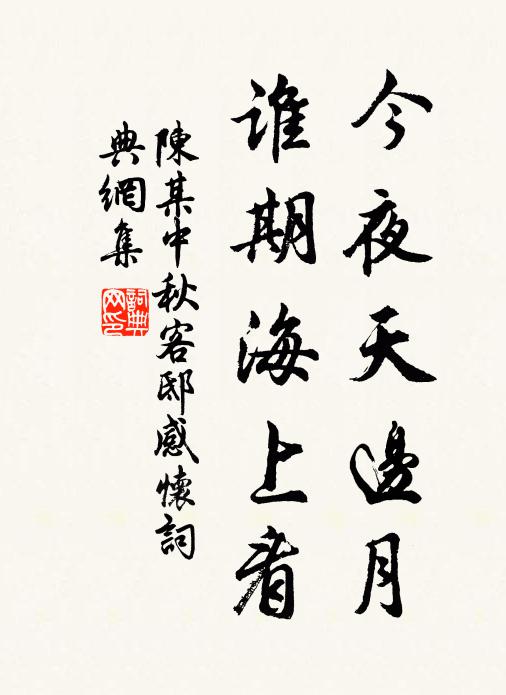 今夜天邊月
誰期海上看
陳某中秋客邸感懷詞
典網集
詞典
网印